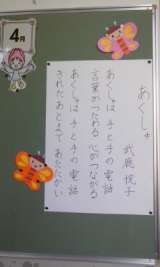 4月
あくしゅ
武鹿 悦子
あくしゅは 手と手の電話
言葉がつたわる 心がつながる
あくしゅは 手と手の電話
されたあとまで あたたかい